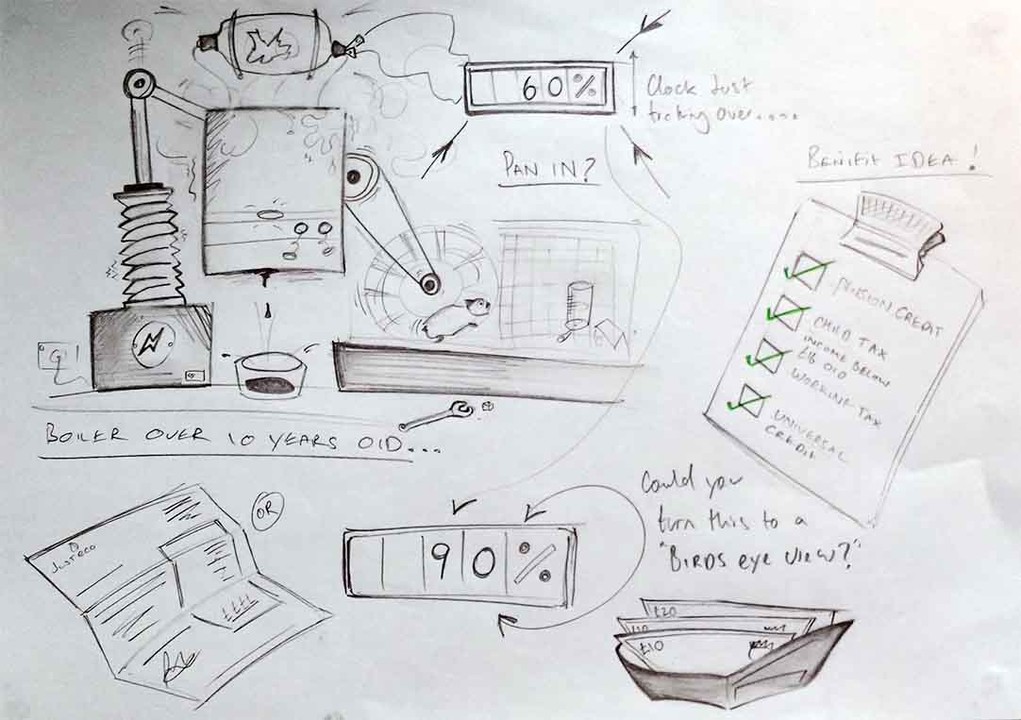 60%
Clock Just
ticking over.....
PAN IN?
BENIFIT IDEA!
PENSION CREDIT
CHILD TAX
INCOME BELOW
£16 010
WORKING TAX
UNIVERSAL
CREDIT
BOILER OVER 10 YEARS OLD...
OR
Just eco
££££
90%
Could you
turn this to a
"BIRDS eye view?"
£20
£10
£10